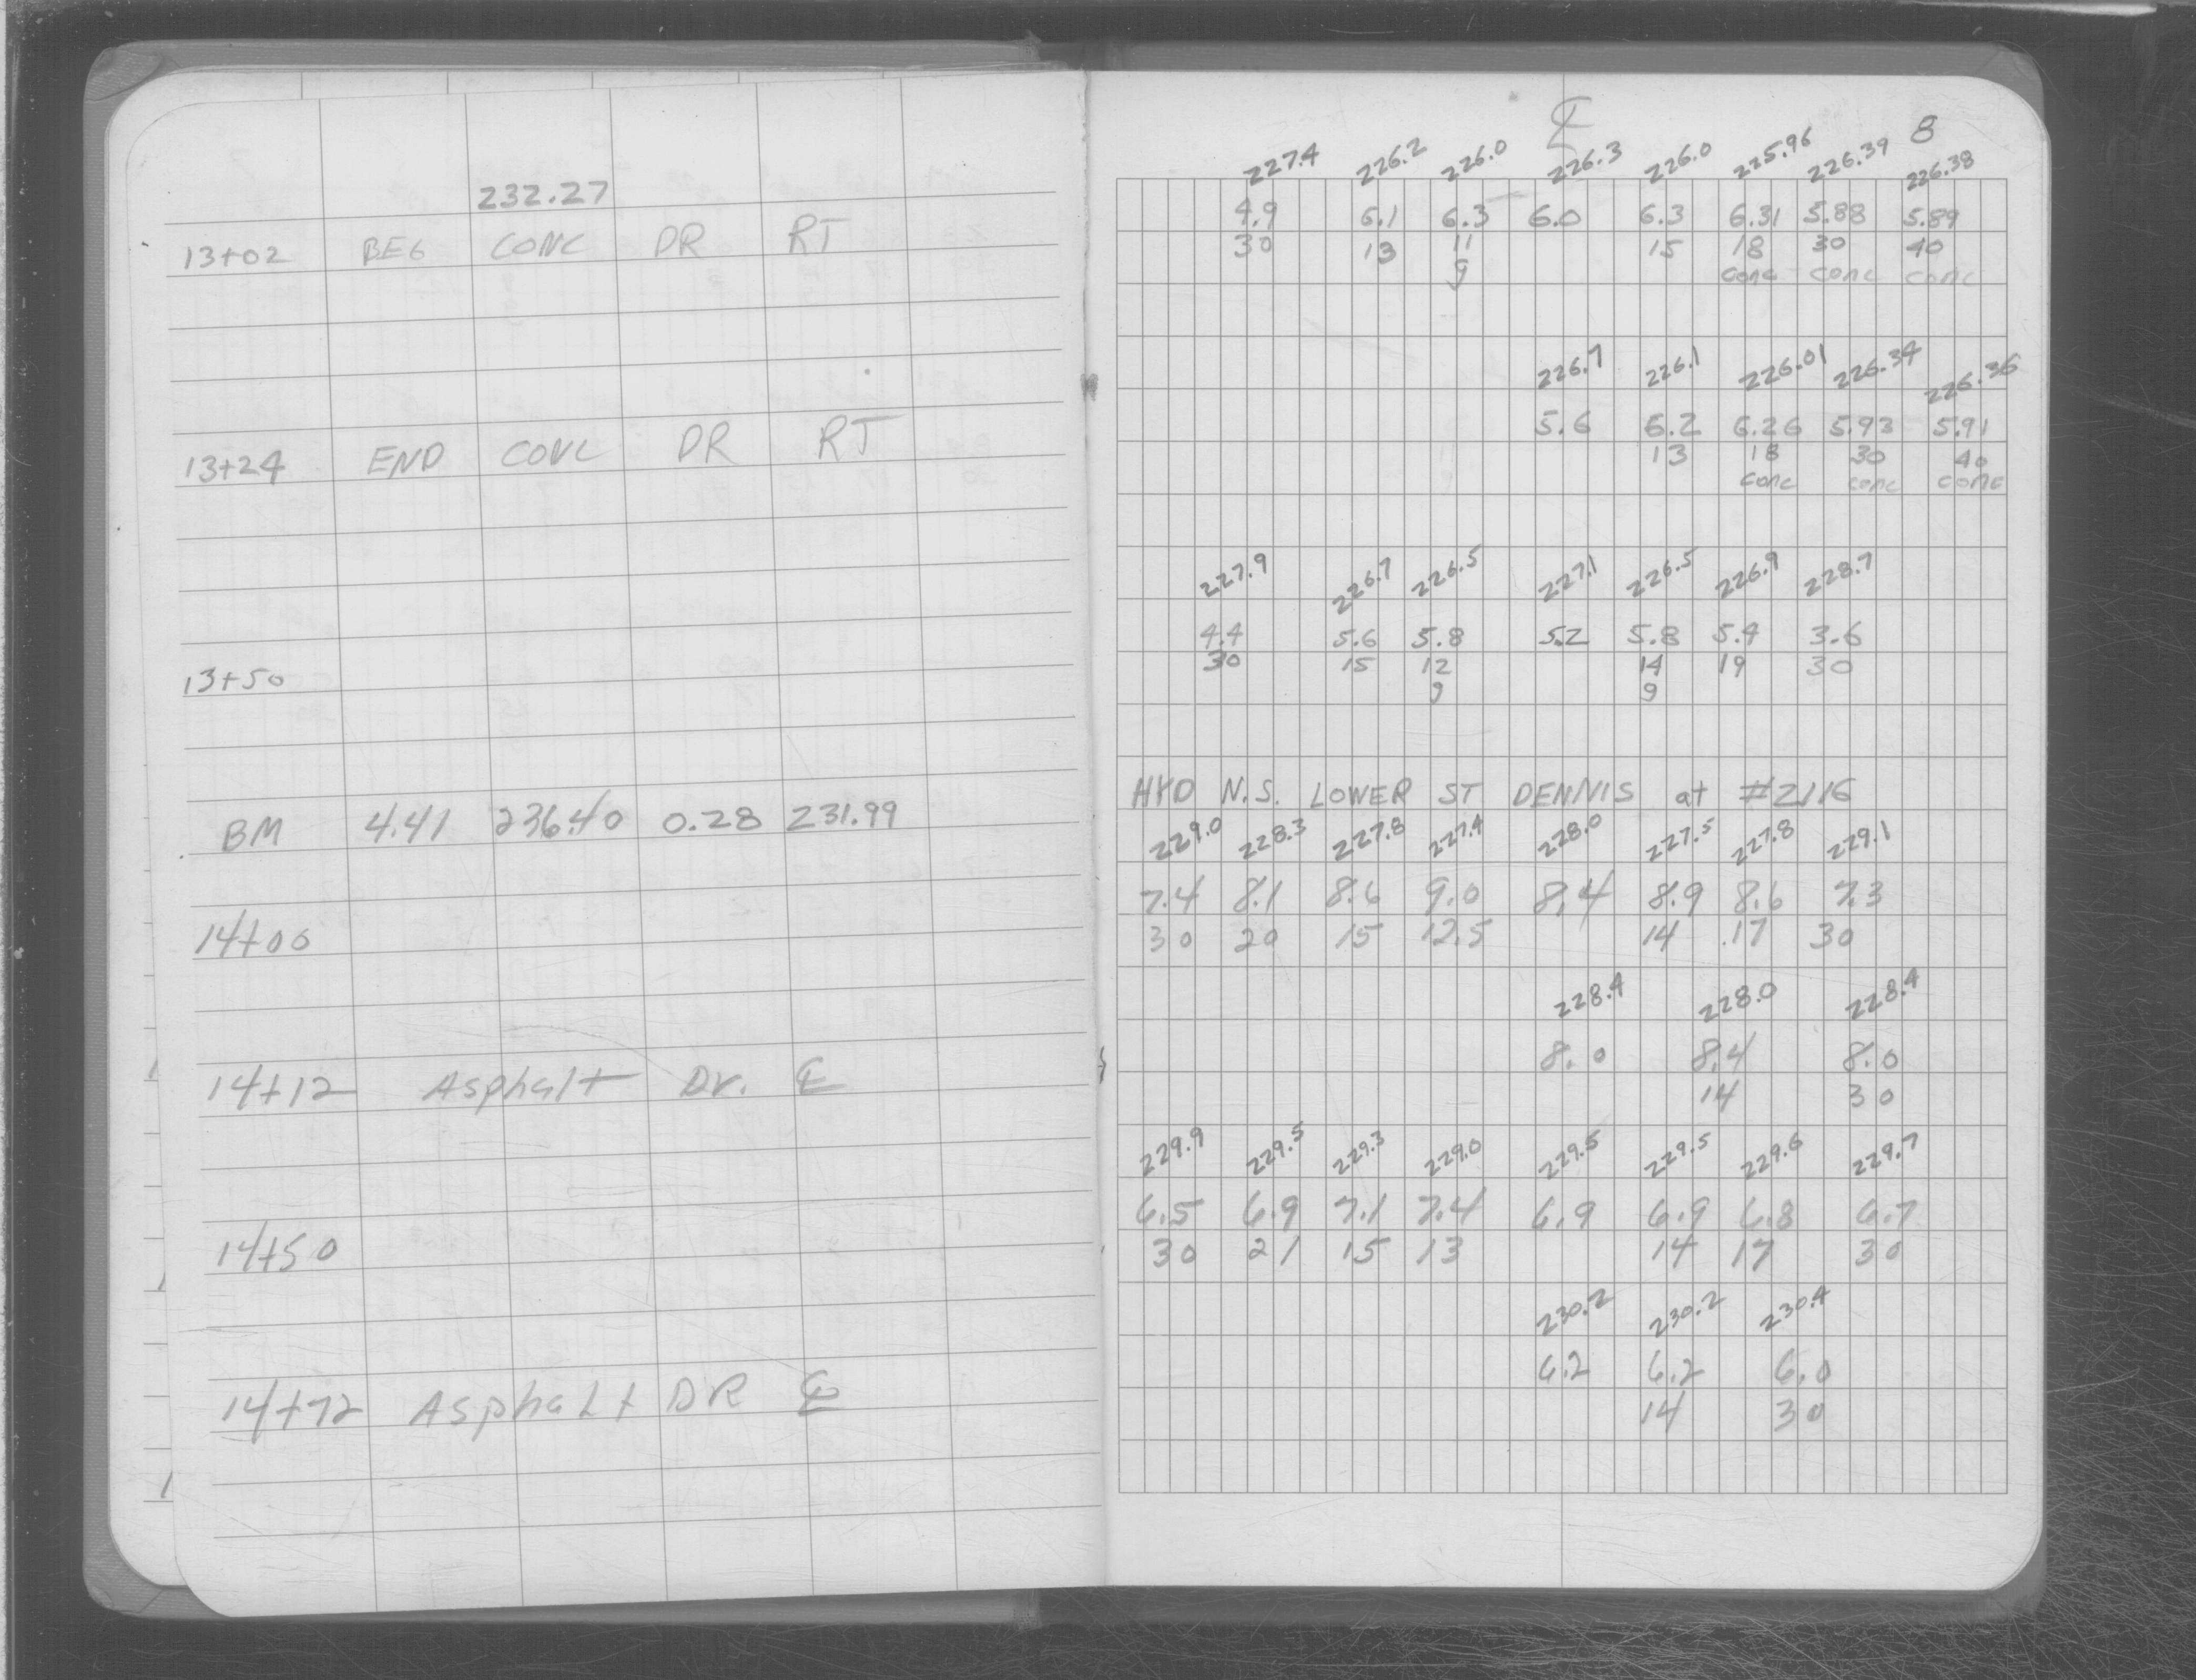 232.27
13+02 BEG CONC DR RT
13+24 END CONC DR RT
13+50
BM 4.41 236.40 0.28 231.99
14+00
14+12 Asphalt Dr. ℄
14+50
14+72 Asphalt DR ℄
℄ 8
227.4 226.2 226.0 226.3 226.0 225.96 226.39 226.38
4.9 6.1 6.3 6.0 6.3 6.31 5.88 5.89
30 13 11 15 18 30 40
g conc conc conc
226.7 226.1 226.01 226.34 226.36
5.6 6.2 6.26 5.93 5.91
13 18 30 40
conc conc conc
227.9 226.7 226.5 227.1 226.5 226.9 228.7
4.4 5.6 5.8 5.2 5.8 5.4 3.6
30 15 12 14 19 30
g g
HYD N.S. LOWER ST DENNIS at #2116
229.0 228.3 227.8 227.4 228.0 227.5 227.8 229.1
7.4 8.1 8.6 9.0 8.4 8.9 8.6 7.3
30 20 15 12.5 14 17 30
228.4 228.0 228.4
8.0 8.4 8.0
14 30
229.9 229.5 229.3 229.0 229.5 229.5 229.6 229.7
6.5 6.9 7.1 7.4 6.9 6.9 6.8 6.7
30 21 15 13 14 17 30
230.2 230.2 230.4
6.2 6.2 6.0
14 30